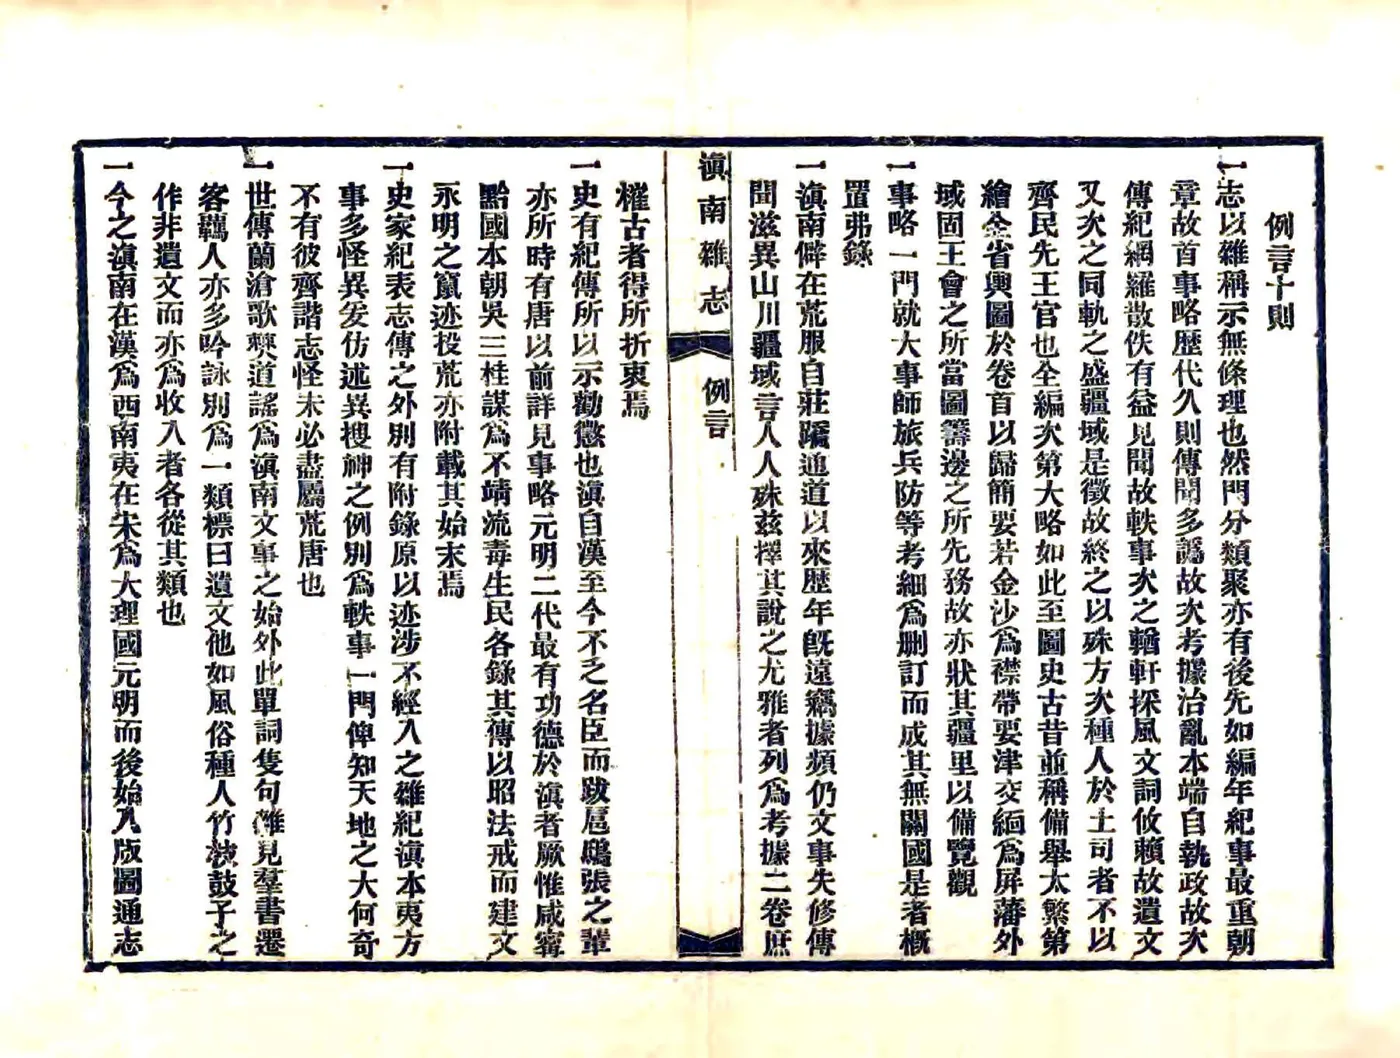 例言十則
一志以雜稱示無條理也然門分類聚亦有後先如編年紀事最重朝
章故首事略歴代久則傳聞多譌故次考據治亂本端自執政故次
傳紀網羅散佚有益見聞故軼事次之輶軒採風文詞攸賴故遺文
又次之同軌之盛疆域是徵故終之以殊方次種人於土司者不以
齊民先王官也全編次第大略如此至圖史古昔並稱備舉太繁第
繪全省輿圖於卷首以歸簡要若金沙爲襟帶要津交緬爲屏藩外
域固王會之所當圖籌邊之所先務故亦狀其疆里以備覽觀
一事略一門就大事師旅兵防等考細爲删訂而成其無關國是者槪
置弗錄
一滇南僻在荒服自莊蹻通道以來歴年旣遠竊據頻仍文事失修傳
聞滋異山川疆域言人人殊兹擇其說之尤雅者列爲考據二卷庶
滇南雜志
例言
榷古者得所折衷焉
一史有紀傳所以示勸懲也滇自漢至今不乏名臣而跋扈鴟張之輩
亦所時有唐以前詳見事略元明二代最有功德於滇者厥惟咸寧
黔國本朝吳三桂謀爲不靖流毒生民各錄其傳以昭法戒而建文
永明之竄迹投荒亦附載其始末焉
一史家紀表志傳之外別有附錄原以迹涉不經入之雜紀滇本夷方
事多怪異爰仿述異搜神之例別爲軼事一門俾知天地之大何奇
不有彼齊諧志怪未必盡屬荒唐也
一世傳蘭滄歌樊道謠爲滇南文事之始外此單詞隻句雜見羣書遷
客羈人亦多吟詠別爲一類標曰遺文他如風俗種人竹枝鼓子之
作非遺文而亦爲收入者各從其類也
一今之滇南在漢爲西南夷在宋爲大理國元明而後始入版圖通志